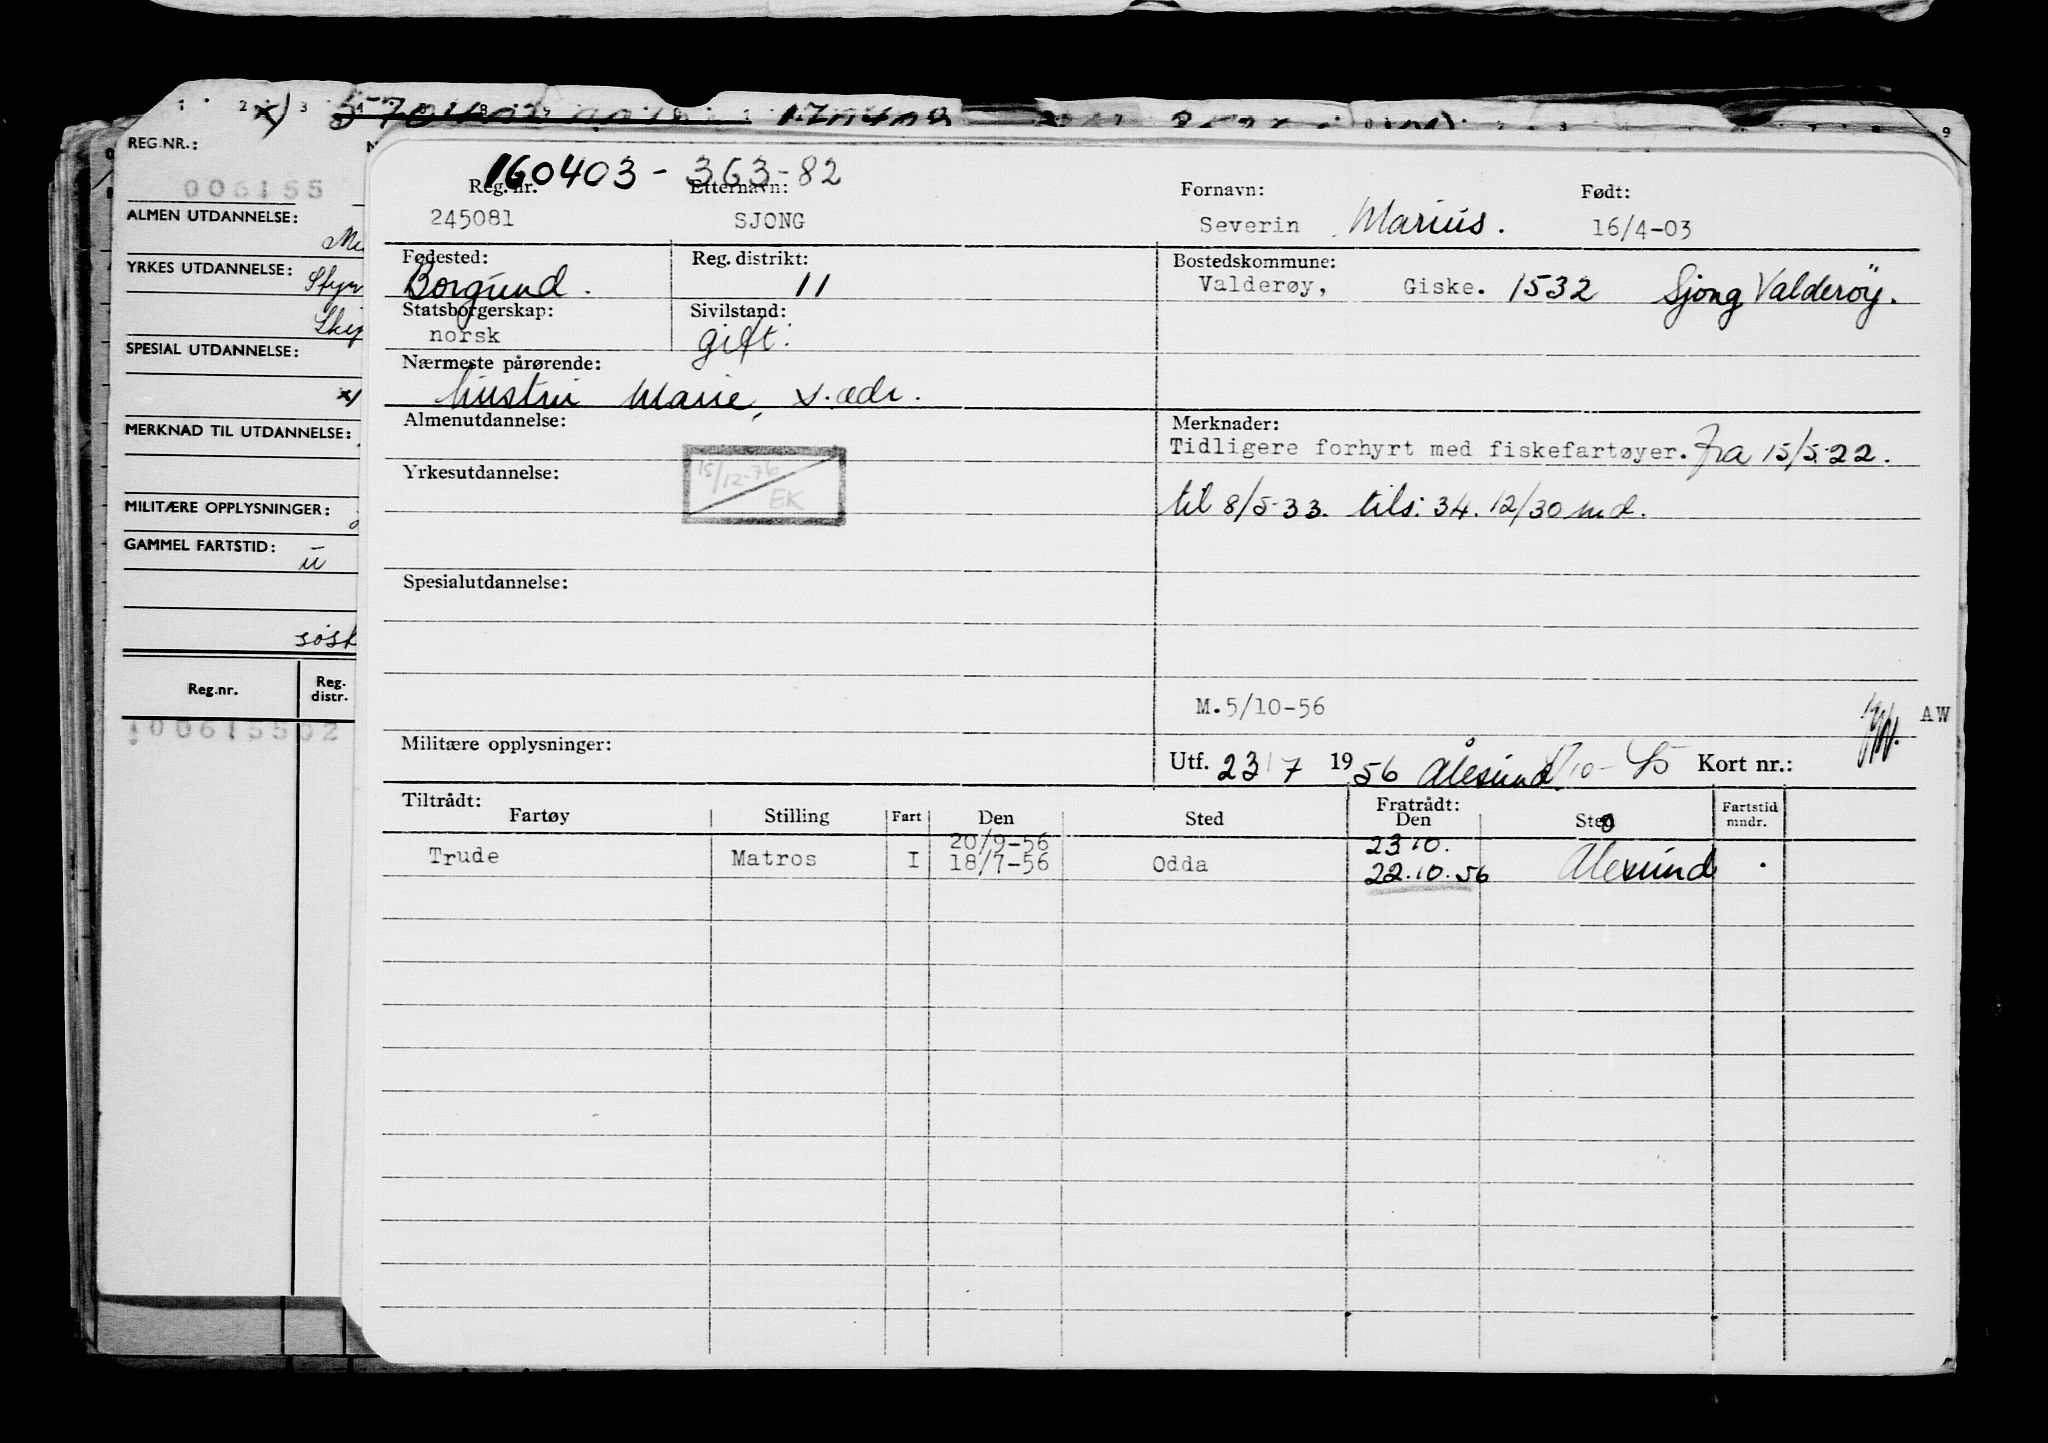 1 2 x) 3
REG.NR.:
006155
ALMEN UTDANNELSE:
YRKES UTDANNELSE:
SPESIAL UTDANNELSE:
x)
MERKNAD TIL UTDANNELSE:
MILITÆRE OPPLYSNINGER:
GAMMEL FARTSTID:
Reg.nr. Reg. distr.
00615502
160403 - 363-82
Reg. nr. Etternavn: Fornavn: Født:
245081 SJONG Severin Marius. 16/4-03
Fødested: Reg. distrikt: Bostedskommune:
Borgund. 11 Valderøy, Giske. 1532 Sjong Valderøy.
Statsborgerskap: Sivilstand:
norsk gift.
Nærmeste pårørende:
hustru Marie, s. adr.
Almenutdannelse: Merknader:
Tidligere forhyrt med fiskefartøyer. fra 15/5-22.
Yrkesutdannelse: 15/12-76 EK
til 8/5-33. tils: 34. 12/30 md.
Spesialutdannelse:
M.5/10-56
AW
Militære opplysninger:
Utf. 23/7 1956 Ålesund Kort nr.:
Tiltrådt: Fratrådt:
Fartøy Stilling Fart Den Sted Den Sted Fartstid mndr.
20/9-56 23 10.
Trude Matros I 18/7-56 Odda 22.10.56 Ålesund